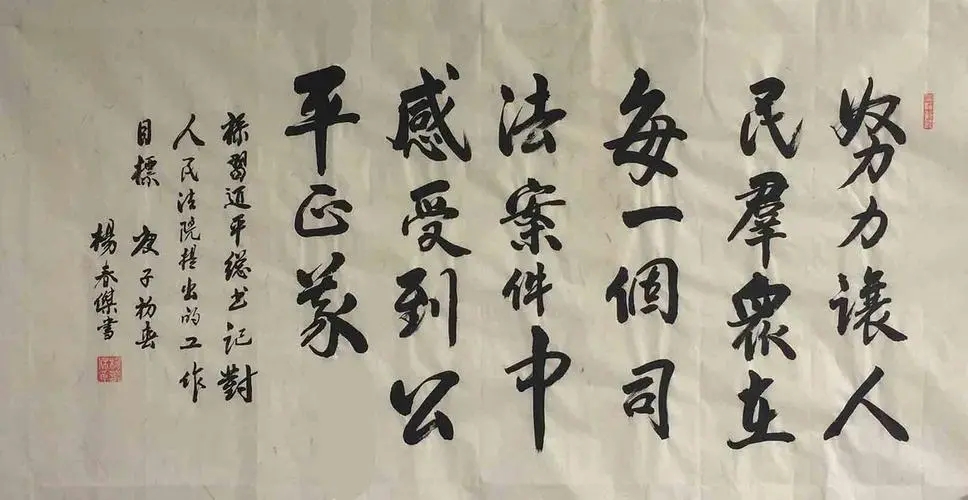 努力讓人
民羣衆在
每一個司
法案件中
感受到公
平正義
録習近平総书記對
人民法院提出的工作
目標 庚子初春
楊春傑書